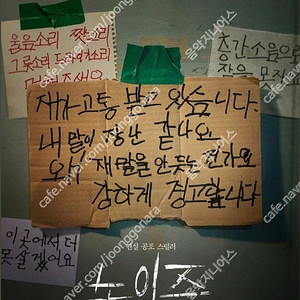 울음소리 짖소리
층간소음으로
제가 고통 받고 있습니다.
내 말이 장난 같나요
왜 제 말을 안 듣는 건가요
강하게 경고합니다
이곳에서 더
못 살겠어요
현실 공포 스릴러
노이즈
cafe.naver.com/joonggonara
음악지니어스